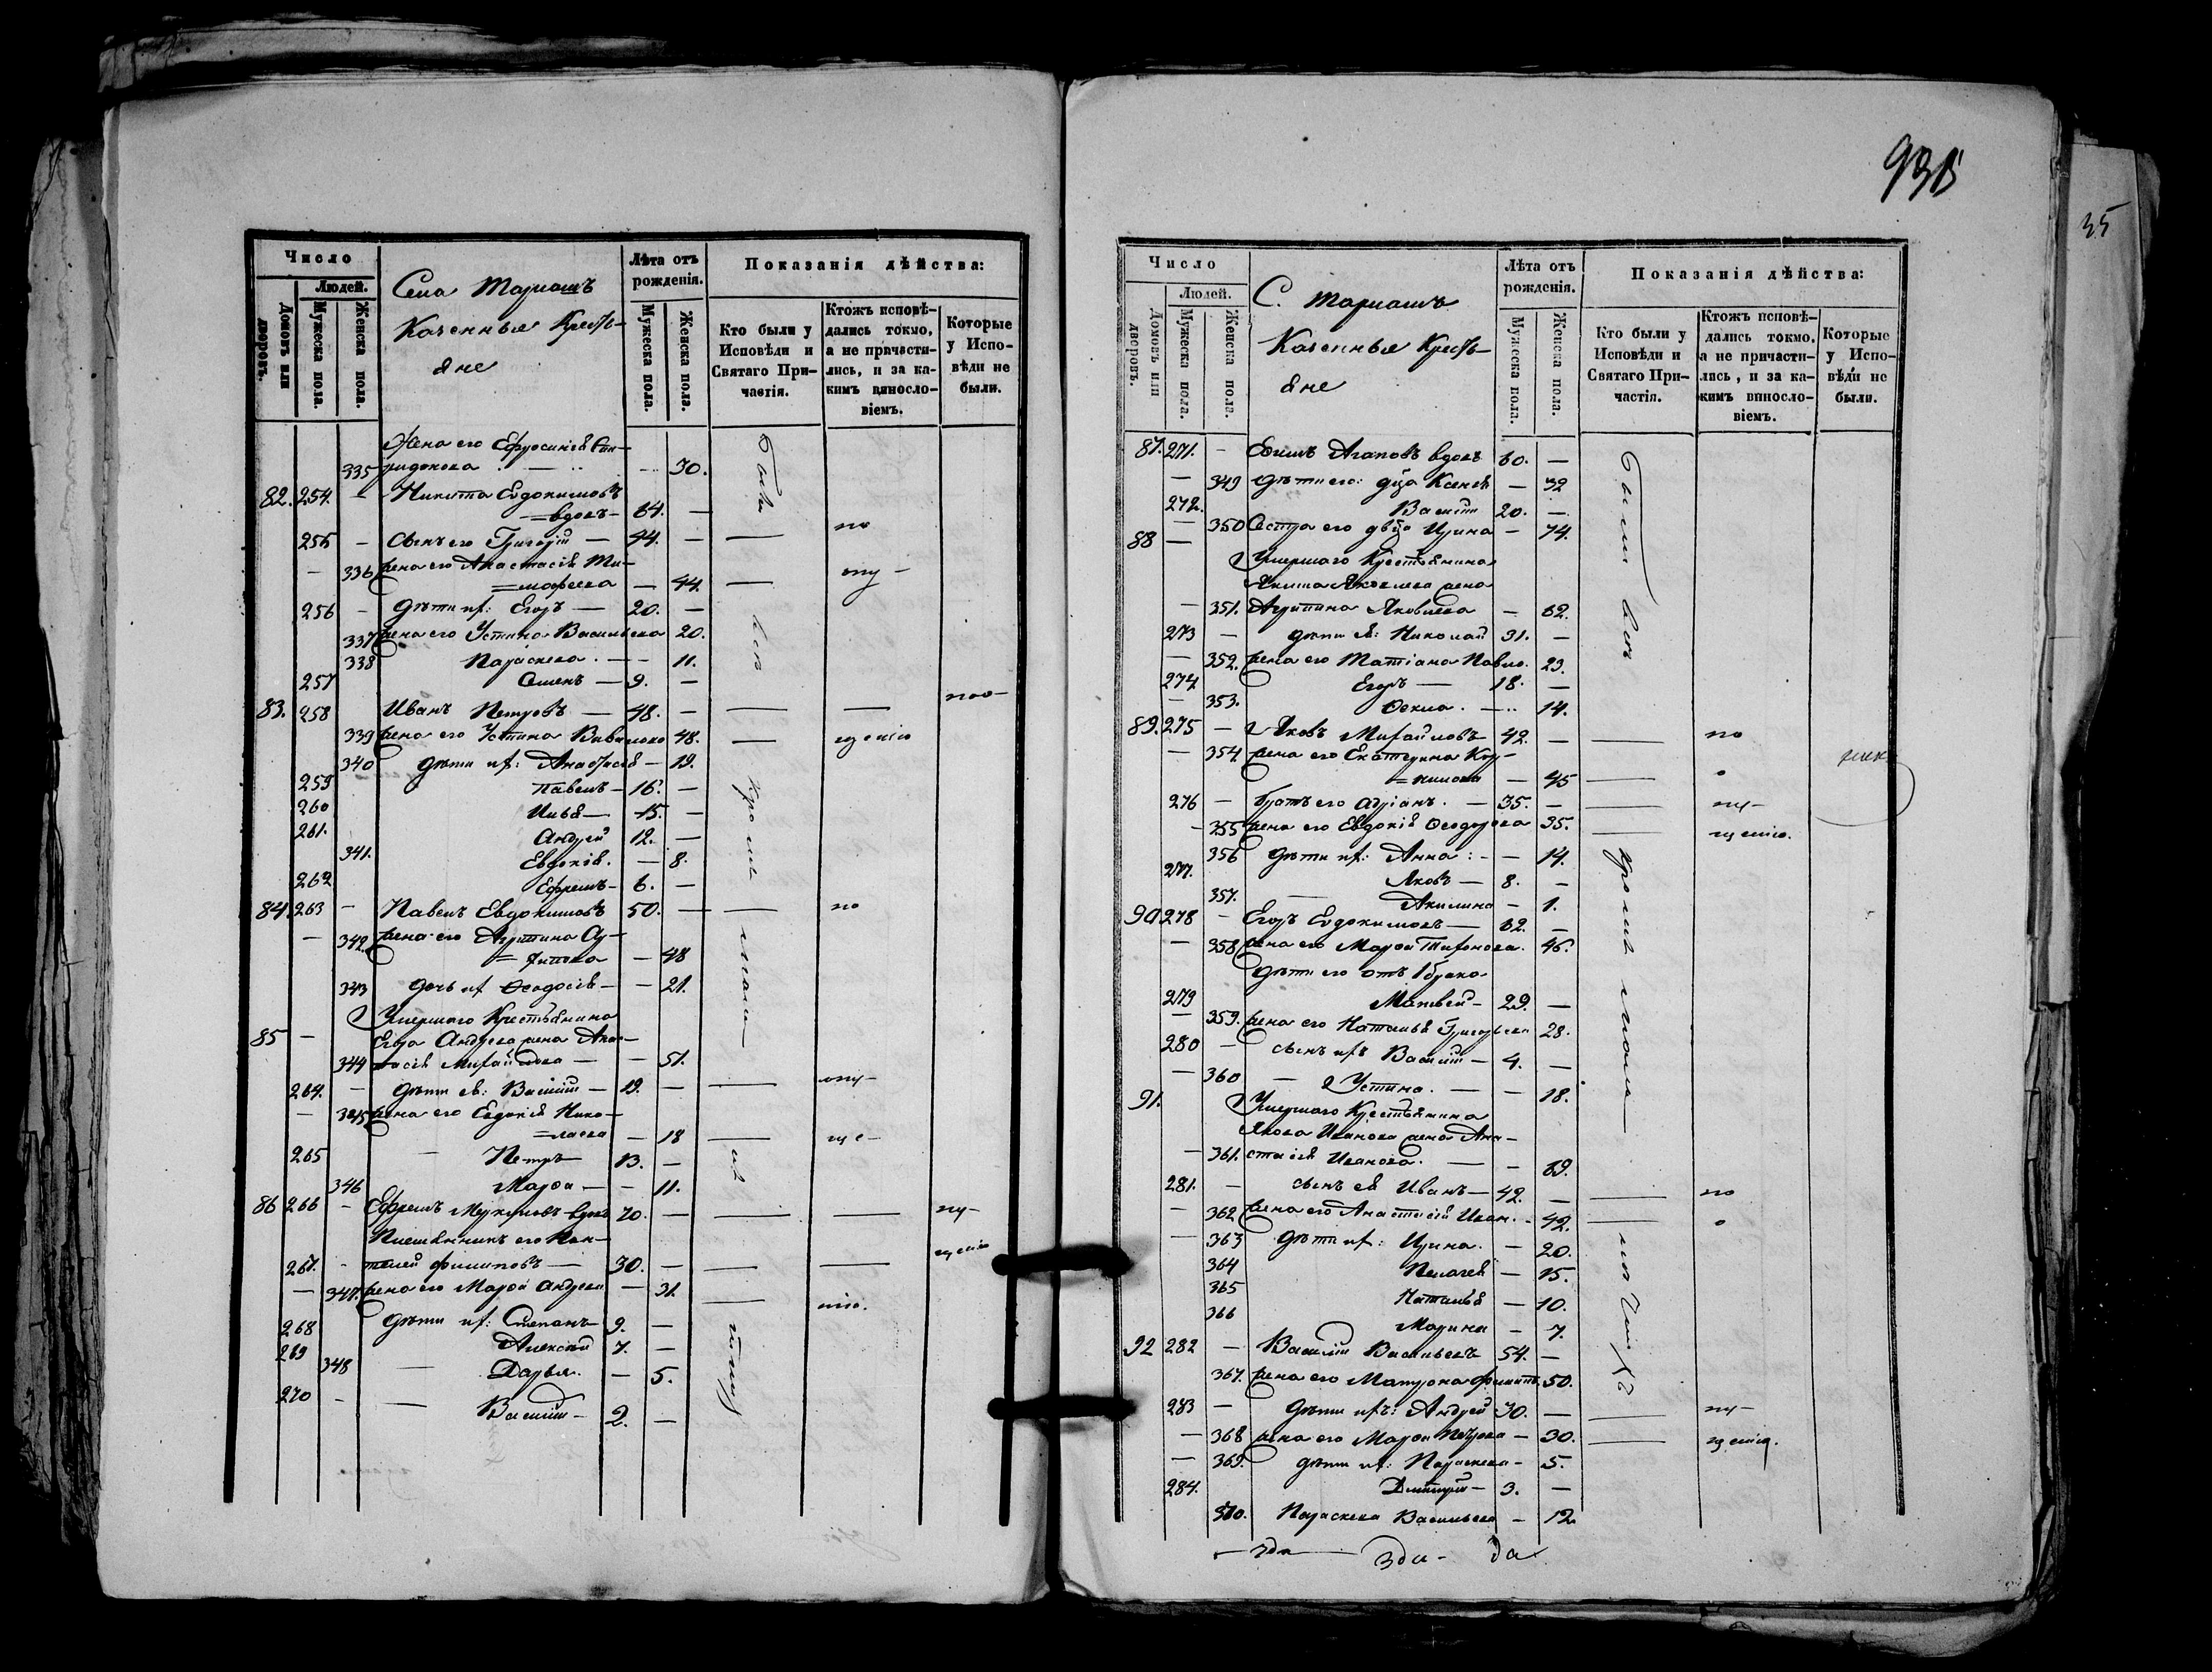 Число
Людей.
Домовъ или дворовъ.
Мужеска пола.
Женска пола.
Села Мариашъ
Казенныя Кресть-
яне
Лѣта отъ рожденія.
Мужеска пола.
Женска пола.
Показанія дѣйства:
Кто были у Исповѣди и Святаго Причастія.
Ктожъ исповѣдались токмо, а не причастились, и за какимъ винословіемъ.
Которые у Исповѣди не были.
Жена его Ефросинія Спи-
335 ридонова — 30.
82. 254. — Никита Евдокимовъ
=вдовъ — 64. —
255 — Сынъ его Григорій — 44. — — по
— 336 жена его Анастасія Ти-
=мофеева — 44. — опу-
256 — Дѣти их: Егоръ — 20. —
337 жена его Устина Васильева 20.
338 Параскева. — 11.
257 Семенъ — 9. —
83. 258 Иванъ Петровъ — 48. — — — поо-
339 жена его Устина Вавилова 48. — щенію
340 дѣти их: Анастасія — 19.
259 Павелъ — 16. —
260 Илья — 15. —
261. Андрей 12. —
341. Евдокія. — 8.
262 Ефремъ — 6. —
84. 263 — Павелъ Евдокимовъ 50. — — по
— 342. жена его Агрипина
— 48
343 дочь их Феодосія — — 21.
Умершаго Крестьянина
85 — Егора Андреева жена Анас-
344 тасія Михайлова — — 51.
264. — дѣти ея: Василій — 19. — — опу-
— 345 жена его Евдокія Нико-
=лаева — 18 — ще-
265 — Петръ — 13. —
346 Марѳа — — 11.
86 266 — Ефремъ Меркуловъ вдовъ 70. — — — пу-
Племянникъ его Пан-
267. — телей Филиповъ — 30. — — — щенію
— 347. жена его Марѳа Андреева — 31. — нію.
268 дѣти их: Степанъ 9. —
269 Алексѣй 7. —
348 — Дарья. — 5.
270 — — Василій — 2. —
Были
всѣ
кромѣ
930
35
Число
Людей.
Домовъ или дворовъ.
Мужеска пола.
Женска пола.
С. Мариашъ
Казенныя Кресть-
яне
Лѣта отъ рожденія.
Мужеска пола.
Женска пола.
Показанія дѣйства:
Кто были у Исповѣди и Святаго Причастія.
Ктожъ исповѣдались токмо, а не причастились, и за какимъ винословіемъ.
Которые у Исповѣди не были.
87. 271. — Агаповъ вдовъ 60. —
— 349 дѣти его: дѣца Ксенія — 32
272. Василій 20. —
— 350 Сестра его дѣвца Ирина — 74.
88 — Умершаго Крестьянина
Яковлева жена
— 351. Агрипина Яковлева — 62.
273 — дѣти ея: Николай 31. —
— 352. жена его Татіана Павло. 29.
274 Егоръ — 18. —
— 353. Ѳекла. — 14.
89. 275 — Яковъ Михайловъ 42. — — по
— 354 жена его Екатерина Кор-
=нилова — 45 —
276 — братъ его Адріанъ. — 35. — — пу-
— 355 жена его Евдокія Ѳеодорова 35. — щенію.
356 дѣти их: Анна: — — 14.
277. Яковъ — 8. —
357. — Акилина — 1.
90. 278 — Егоръ Евдокимовъ — 62. —
— 358 жена его Марѳа Тихонова. 46.
дѣти его отъ 1 брака
279 Матвей — 29. —
— 359. жена его Наталья Григорьева 28.
280 — сынъ ихъ Василій — 4. —
— 360 — Устина. — — 18.
91. Умершаго Крестьянина
Якова Иванова жена Ана-
— 361. стасія Иванова. — — 69.
281. — сынъ ея Иванъ — 42. — — по
— 362 жена его Анастасія Иван. — 42. —
— 363 дѣти их: Ирина. — 20.
364 Пелагея — 15.
365 Наталья — 10.
366 Марина — 7.
92 282 — Василій Васильевъ 54. —
367. жена его Матрона Филип. 50.
283 — дѣти ихъ: Андрей 30. — — пу-
— 368 жена его Марѳа Петрова — 30. — щенію.
— 369. дѣти их: Параскева — 5.
284. Дмитрій — 3. —
370. Параскева Васильева — 12
Были всѣ
кромѣ